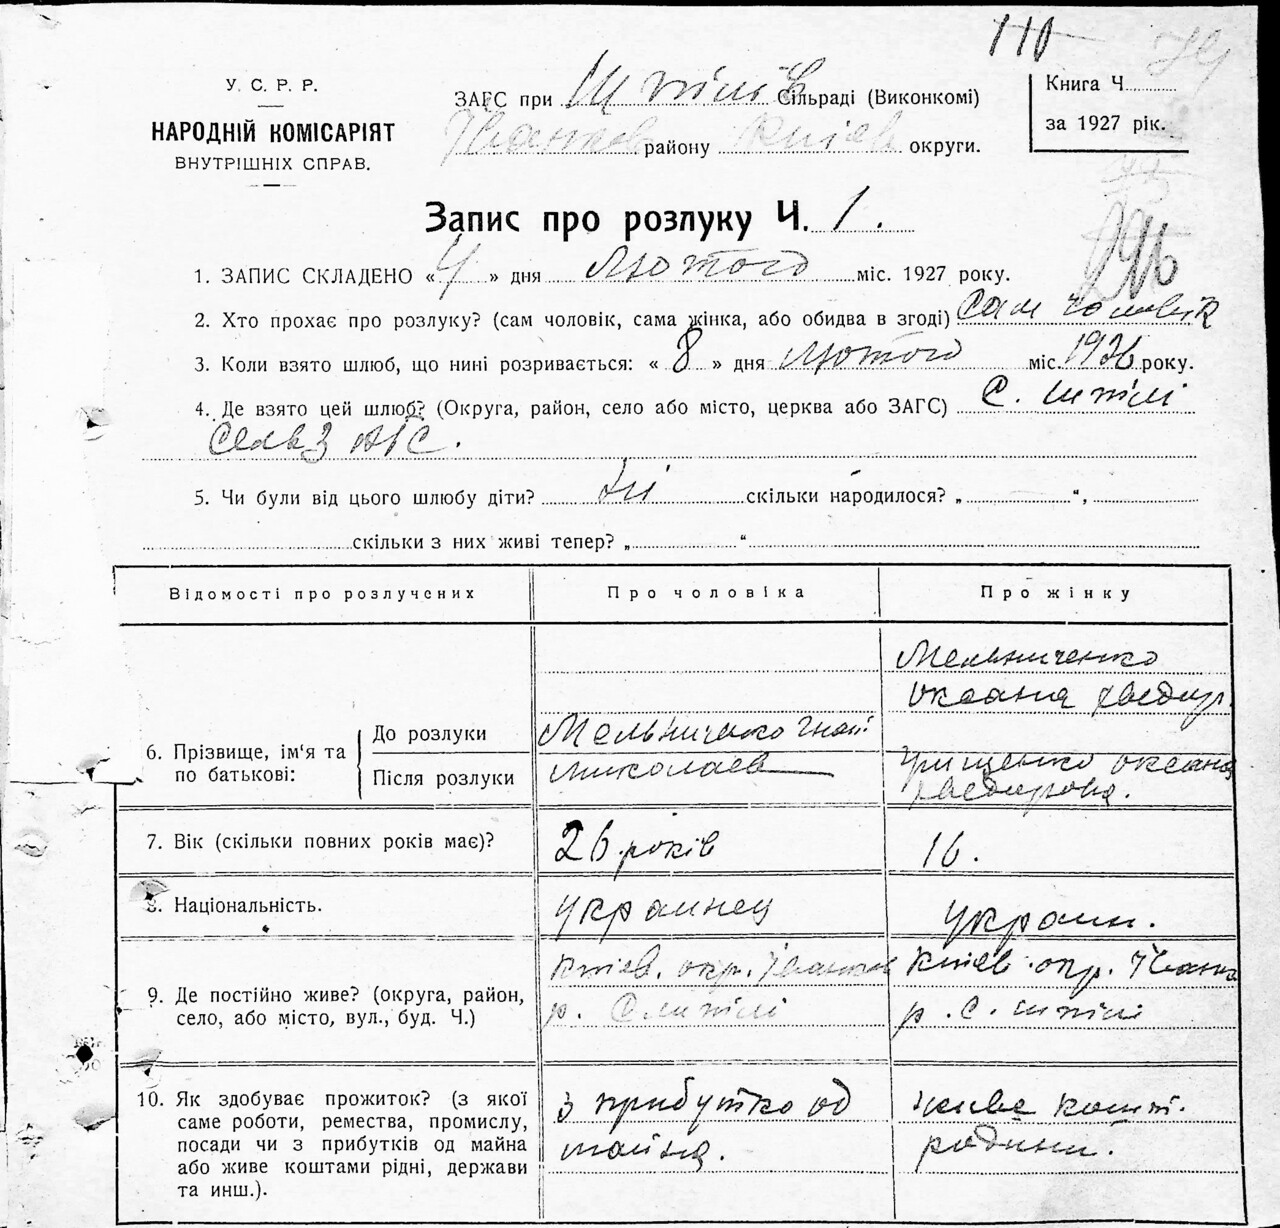 110
У. С. Р. Р.
НАРОДНІЙ КОМІСАРІЯТ
ВНУТРІШНІХ СПРАВ.
ЗАГС при Штілів Сільраді (Виконкомі)
Іванков району Київ округи.
Книга Ч.
за 1927 рік.
296
Запис про розлуку Ч. 1.
1. ЗАПИС СКЛАДЕНО « 4 » дня Лютого міс. 1927 року.
2. Хто прохає про розлуку? (сам чоловік, сама жінка, або обидва в згоді) Сам чоловік
3. Коли взято шлюб, що нині розривається: « 8 » дня Лютого міс. 1926 року.
4. Де взято цей шлюб? (Округа, район, село або місто, церква або ЗАГС) С. Штілі
СельЗАГС.
5. Чи були від цього шлюбу діти? Ні скільки народилося? „ “,
скільки з них живі тепер? „ “
Відомости про розлучених
Про чоловіка
Про жінку
6. Прізвище, ім'я та по батькові:
До розлуки
Після розлуки
Мельниченко Гнат
Николаев
Мельниченко
Оксана Хведир.
Грищенко Оксана
Хведировна.
7. Вік (скільки повних років має)?
26 років
16.
8. Національність.
украинец
украин.
9. Де постійно живе? (округа, район,
село, або місто, вул., буд. Ч.)
Київ. окр. Іванков
р. С. Штілі
Київ. окр. Іванк
р. С. Штілі
10. Як здобуває прожиток? (з якої
саме роботи, ремества, промислу,
посади чи з прибутків од майна
або живе коштами рідні, держави
та инш.).
з прибутко од
майна.
живе кошт.
родини.